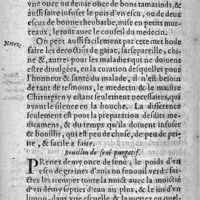 vne once ou demie once de bons tamarinds, &
aussi faire infuser le pois d'vn escu, ou de deux
escus de bonne rheubarbe, mise en petits mor-
ceaux, le tout auec le conseil du medecin.
Notez.
On peut aussi facilement par ceste mode
faire les decoctiõs de gaiac, sarseparelle, chi-
ne &, autres pour les maladies qui ne doiuent
estre diuulguees, en la curation desquelles pour
l'honneur & santé du malade, il n'est besoin
de tant de tesmoins, le medecin & le maistre
Chirurgien y estant seulement necessaires, qui
ayent le silence en la bouche. La differẽce
seulement est pour la preparation desdits me-
dicamens, & du temps qu'ils doiuent infuser
& bouillir, qui est peu de chose, de peu de pei-
ne, & facile a faire.
Bouillon de sené purgatif.
PRenez demy once de sené, le poids d'vn
escu de graines d'anis ou fenouil verd: fai-
ctes les tremper toute la nuict auec la moitié
d'vn demy septier d'eau ou plus, & le ius d'vn
limon, dans vne escuelle, & la mettez en quel-